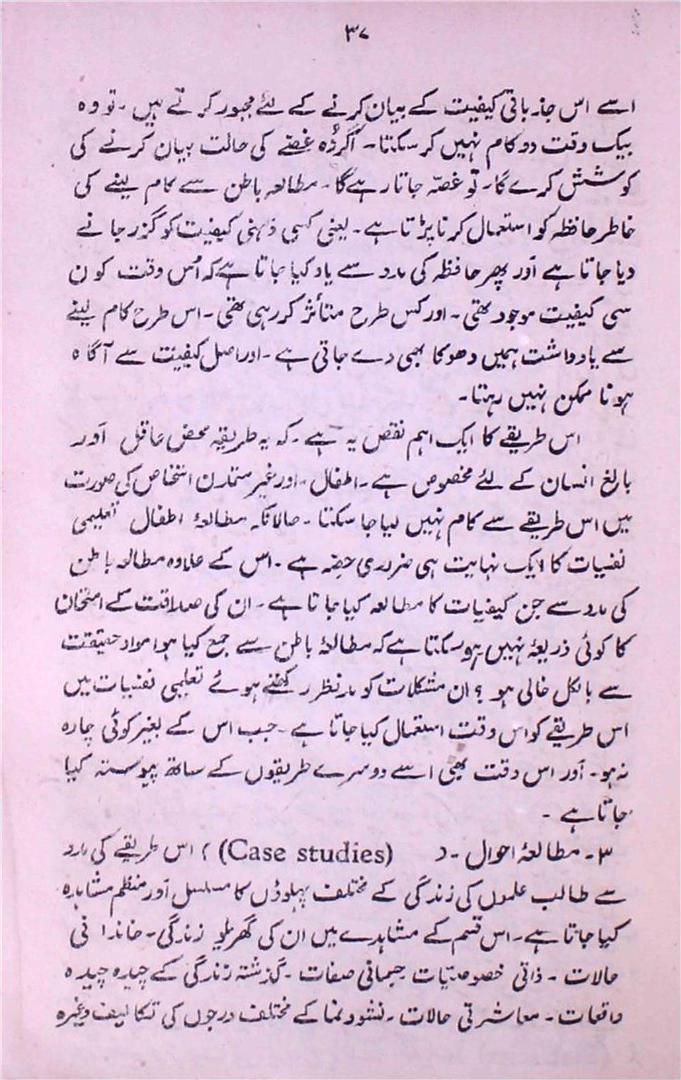 ۳۷
اسے اس جذباتی کیفیت کے بیان کرنے کے لئے مجبور کرتے ہیں ۔ تو وہ
بیک وقت دو کام نہیں کر سکتا ۔ اگر وُہ غصّے کی حالت بیان کرنے کی
کوشش کرے گا ۔ تو غصّہ جاتا رہے گا ۔ مطالعہ باطن سے کام لینے کی
خاطر حافظہ کو استعمال کرنا پڑتا ہے ۔ یعنی کسی ذہنی کیفیت کو گذر جانے
دیا جاتا ہے اور پھر حافظہ کی مدد سے یاد کیا جاتا ہے کہ اُس وقت کون
سی کیفیت موجود تھی ۔ اور کس طرح متأثر کر رہی تھی ۔ اس طرح کام لینے
سے یادداشت ہمیں دھوکا بھی دے جاتی ہے ۔ اور اصل کیفیت سے آگاہ
ہونا ممکن نہیں رہتا ۔
اس طریقے کا ایک اہم نقص یہ ہے ۔ کہ یہ طریقہ محض عاقل اور
بالغ انسان کے لئے مخصوص ہے ۔ اطفال ۔ اور غیر متمدن اشخاص کی صورت
میں اس طریقے سے کام نہیں لیا جا سکتا ۔ حالانکہ مطالعۂ اطفال تعلیمی
نفسیات کا ایک نہایت ہی ضروری حصّہ ہے ۔ اس کے علاوہ مطالعہ باطن
کی مدد سے جن کیفیات کا مطالعہ کیا جاتا ہے ۔ ان کی صداقت کے امتحان
کا کوئی ذریعۂ نہیں ہو سکتا ہے کہ مطالعۂ باطن سے جمع کیا ہوا مواد حقیقت
سے بالکل خالی ہو ؟ ان مشکلات کو مدنظر رکھتے ہوئے تعلیمی نفسیات میں
اس طریقے کو اس وقت استعمال کیا جاتا ہے ۔ جب اس کے بغیر کوئی چارہ
نہ ہو ۔ اور اس وقت بھی اسے دوسرے طریقوں کے ساتھ پیوستہ کیا
جاتا ہے ۔
۳ ۔ مطالعۂ احوال ۔ د (Case studies) ؛ اس طریقے کی مدد
سے طالب علموں کی زندگی کے مختلف پہلوؤں کا مسلسل اور منظم مشاہدہ
کیا جاتا ہے ۔ اس قسم کے مشاہدے میں ان کی گھریلو زندگی ۔ خاندانی
حالات ۔ ذاتی خصوصیّات جسمانی صفات ۔ گذشتہ زندگی کے چیدہ چیدہ
واقعات ۔ معاشرتی حالات ۔ نشوونما کے مختلف درجوں کی تکالیف وغیرہ